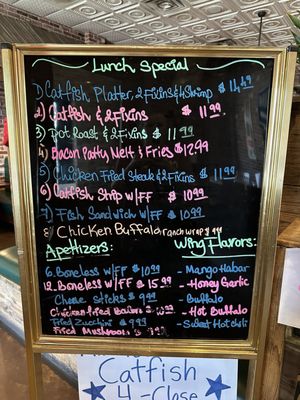 Lunch Special
1) Catfish Platter, 2 Fixins & 4 Shrimp $14.49
2) Catfish & 2 Fixins $11.99
3) Pot Roast & 2 Fixins $11.99
4) Bacon Patty Melt & Fries $12.99
5) Chicken Fried Steak & 2 Fixins $11.99
6) Catfish Strip w/FF $10.99
7) Fish Sandwich w/FF $10.99
8) Chicken Buffalo ranch wrap
Apetizers: Wing Flavors:
6 Boneless w/FF $10.99 - Mango Habar
12 Boneless w/FF $15.99 - Honey Garlic
Cheese Sticks $9.99 - Buffalo
Chicken fried Bacon $ - Hot Buffalo
Fried Zucchini $9.99 - Sweet Hot chili
Fried Mushrooms $
Catfish
4 - Close